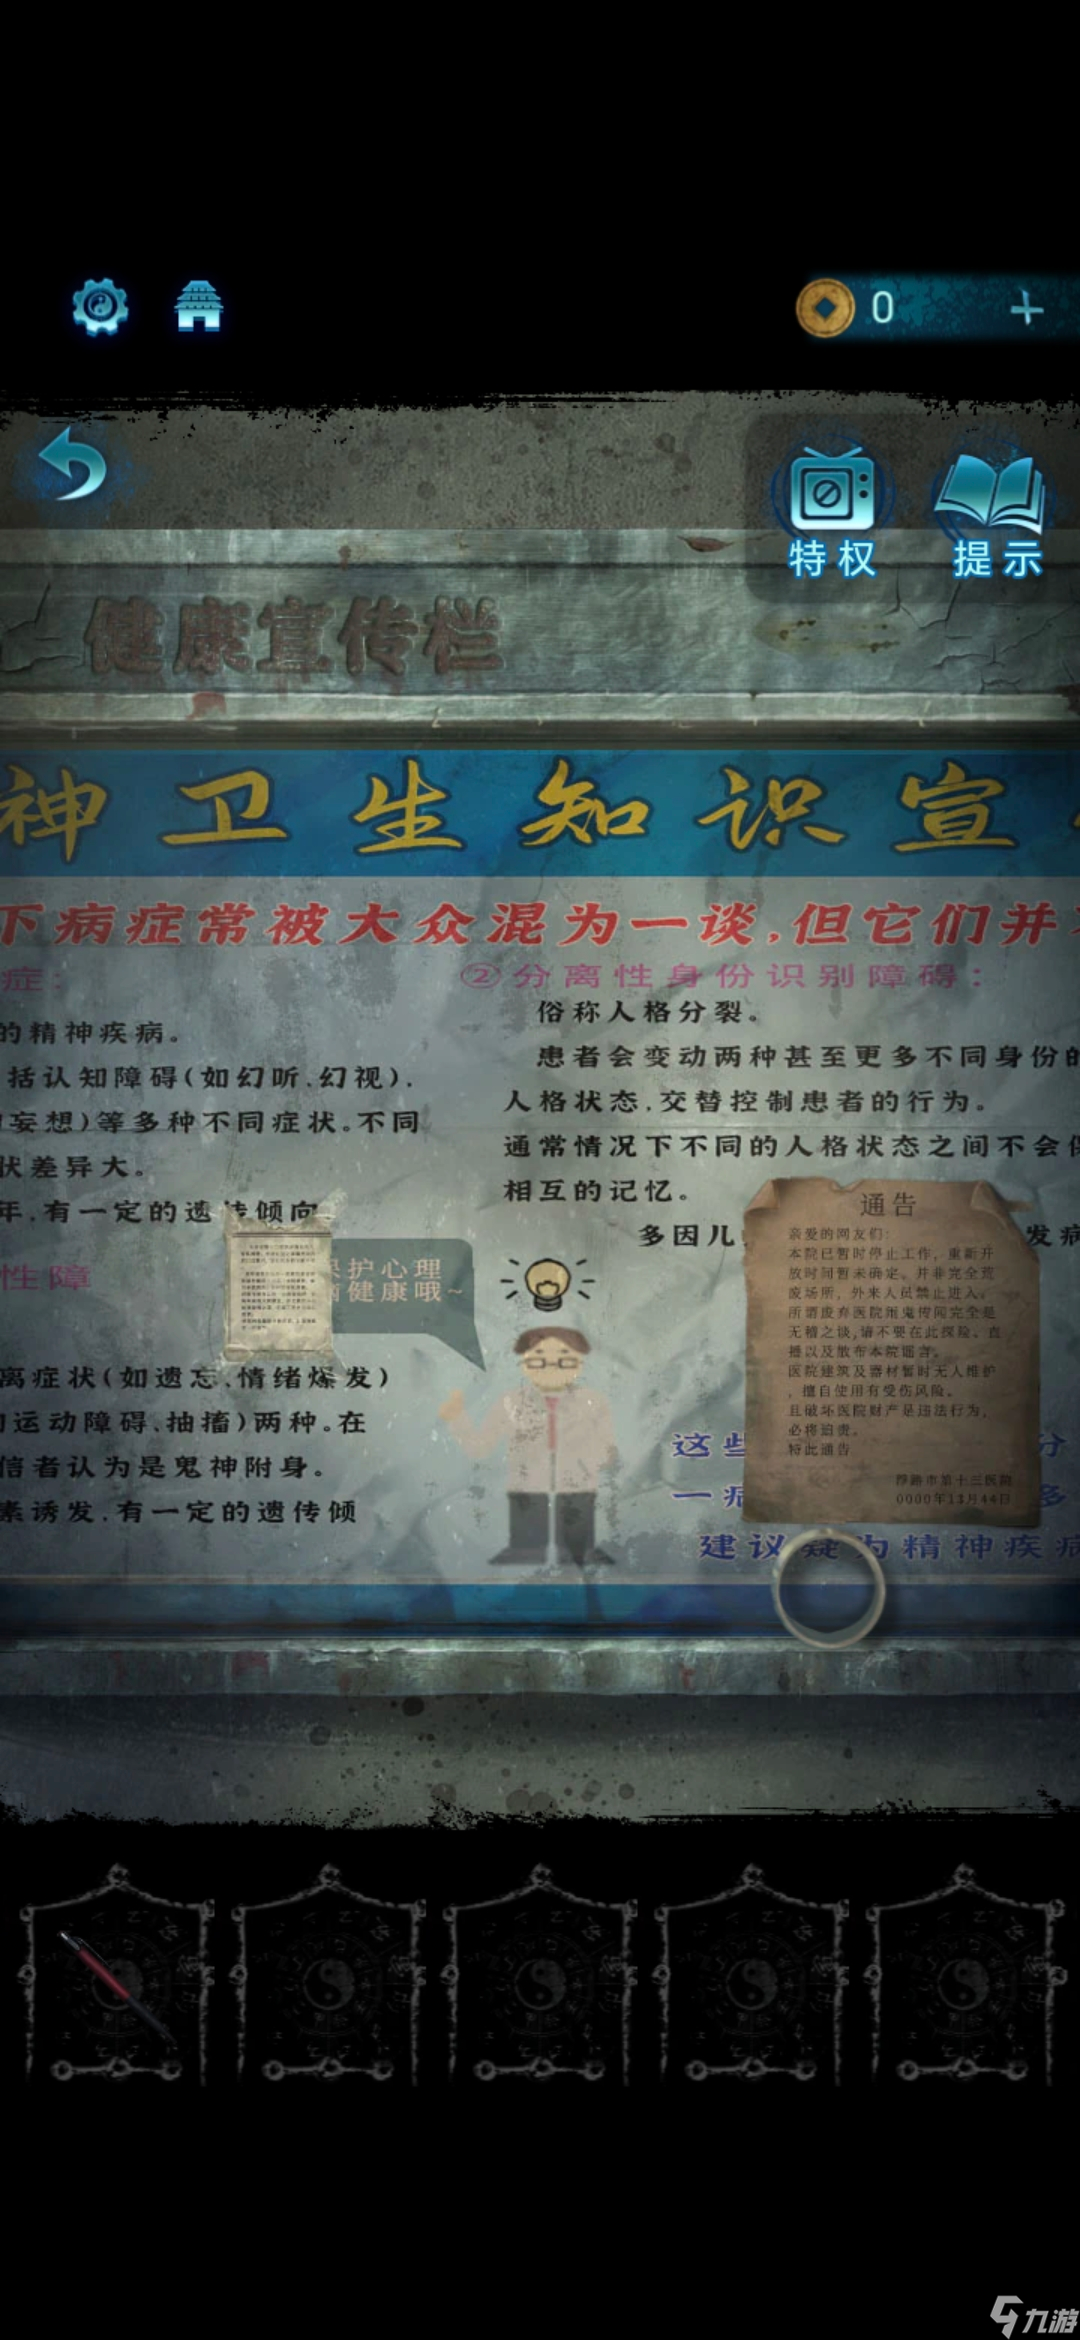 0
特权
提示
健康宣传栏
神卫生知识宣
下病症常被大众混为一谈,但它们并
症:
②分离性身份识别障碍:
的精神疾病。
俗称人格分裂。
括认知障碍(如幻听、幻视).
患者会变动两种甚至更多不同身份的
妄想)等多种不同症状。不同
人格状态,交替控制患者的行为。
状差异大。
通常情况下不同的人格状态之间不会
相互的记忆。
年,有一定的遗传倾向
多因儿
发病
性障
护心理
健康哦~
离症状(如遗忘、情绪爆发)
运动障碍、抽搐)两种。在
信者认为是鬼神附身。
素诱发,有一定的遗传倾
通告
亲爱的网友们:
本院已暂时停止工作,重新开
放时间暂未确定。并非完全荒
废场所,外来人员禁止进入。
所谓废弃医院闹鬼传闻完全是
无稽之谈,请不要在此探险。直
播以及散布本院谣言。
医院建筑及器材暂时无人维护
,擅自使用有受伤风险。
且破坏医院财产是违法行为,
必将追责。
特此通告
市第十三医院
0000年13月44日
这些
分
一病
多
建议疑为精神疾病
九游